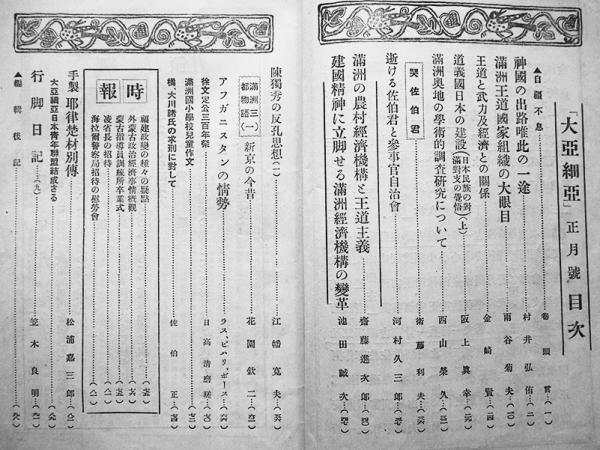 「大亞細亞」正月號 目次
▲自彊不息……卷頭言…(一)
神國の出路唯此の一途……村井弘侑…(二)
滿洲王道國家組織の大眼目……雨谷菊夫…(一0)
王道と武力及經濟との關係……金崎賢…
道義國日本の建設(日本民族の對滿對支の覺悟)(上)……阪上眞幸…
滿洲奥地の學術的調査研究について……西山榮久…
哭佐伯君……衛藤利夫…
逝ける佐伯君と參事官自治會……河村久三郎…
滿洲の農村經濟機構と王道主義……齋藤進次郎…
建國精神に立脚せる滿洲經濟機構の變革……池田誠次…
陳獨秀の反孔思想(一)……江幡寛夫…
滿洲三都物語(一) 新京の今昔……花園欽二…
アフガニスタンの情勢……ラス、ビハリ、ボース…
徐文定公三百年祭……日高清磨瑳…
滿洲國小學校兒童作文
橘、大川諸氏の求刑に對して……佐伯正…
時報
福建政變の種々の疑點
外蒙古政治經濟事情概觀
蒙古指導員訓練所卒業式
凌省長の招待
海拉爾警察局招待の慰勞會
手製 耶律楚材別傳……松浦嘉三郎…
大亞細亞日本青年聯盟結成さる
行脚日記……笠木良明…
▲編輯後記